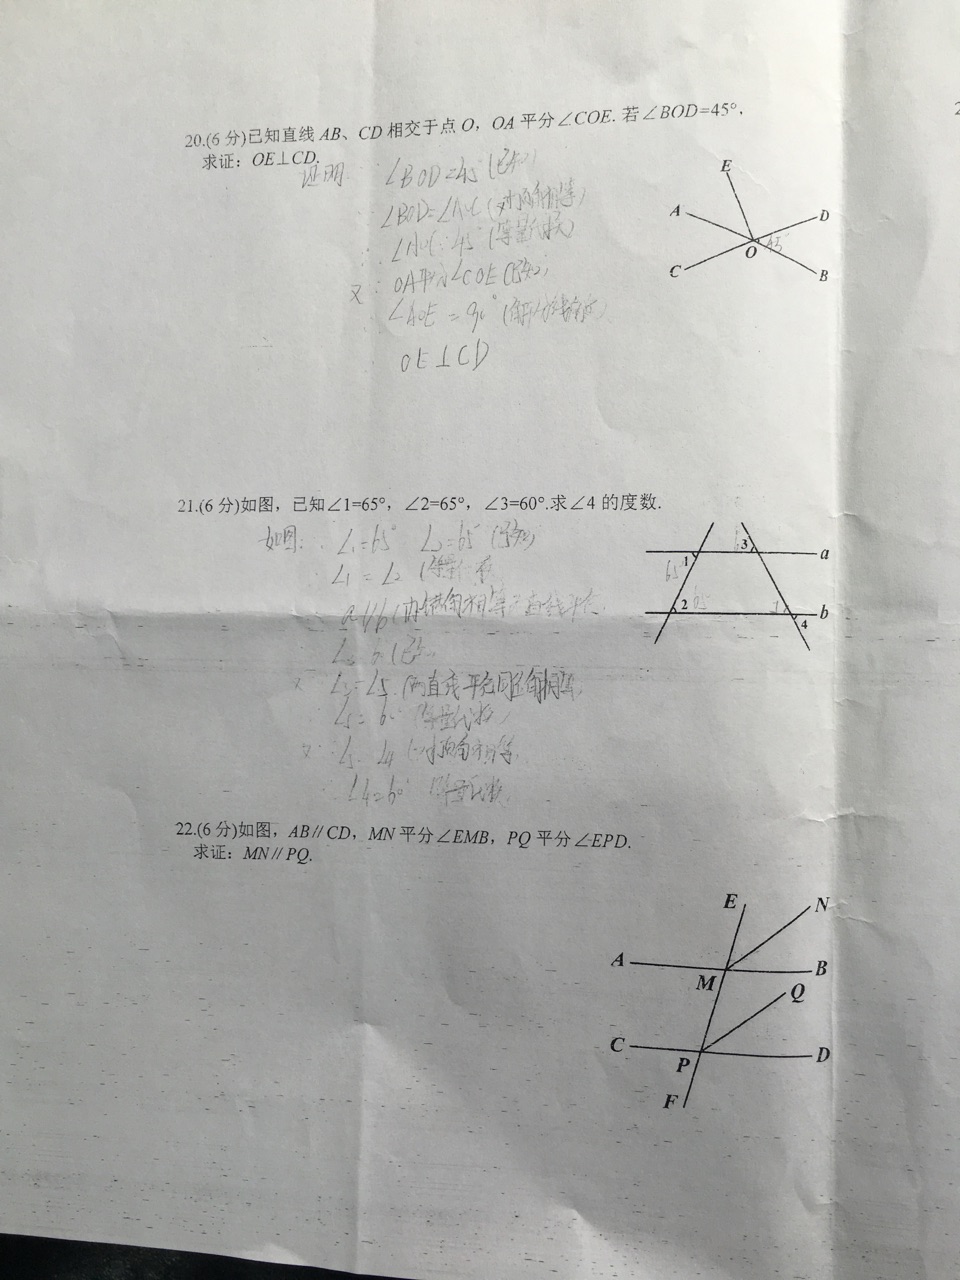 20.(6分)已知直线AB、CD相交于点O，OA平分∠COE.若∠BOD=45°，
求证：OE⊥CD.
证明
∠BOD=45°(已知)
∠BOD=∠AOC(对顶角相等)
∠AOC=45°(等量代换)
又∵OA平分∠COE(已知)
OE⊥CD
E
A
D
O
45°
C
B
21.(6分)如图，已知∠1=65°，∠2=65°，∠3=60°.求∠4的度数.
如图：∵∠1=65° ∠2=65°(已知)
∠1=∠2(等量代换)
a∥b(内错角相等
(已知)
(两直线平行同位角相等)
(等量代换)
又∵∠5=∠4(对顶角相等)
∠4=60°(等量代换)
1
3
a
65°
2
65°
b
4
22.(6分)如图，AB∥CD，MN平分∠EMB，PQ平分∠EPD.
求证：MN∥PQ.
E
N
A
M
B
Q
C
P
D
F
2